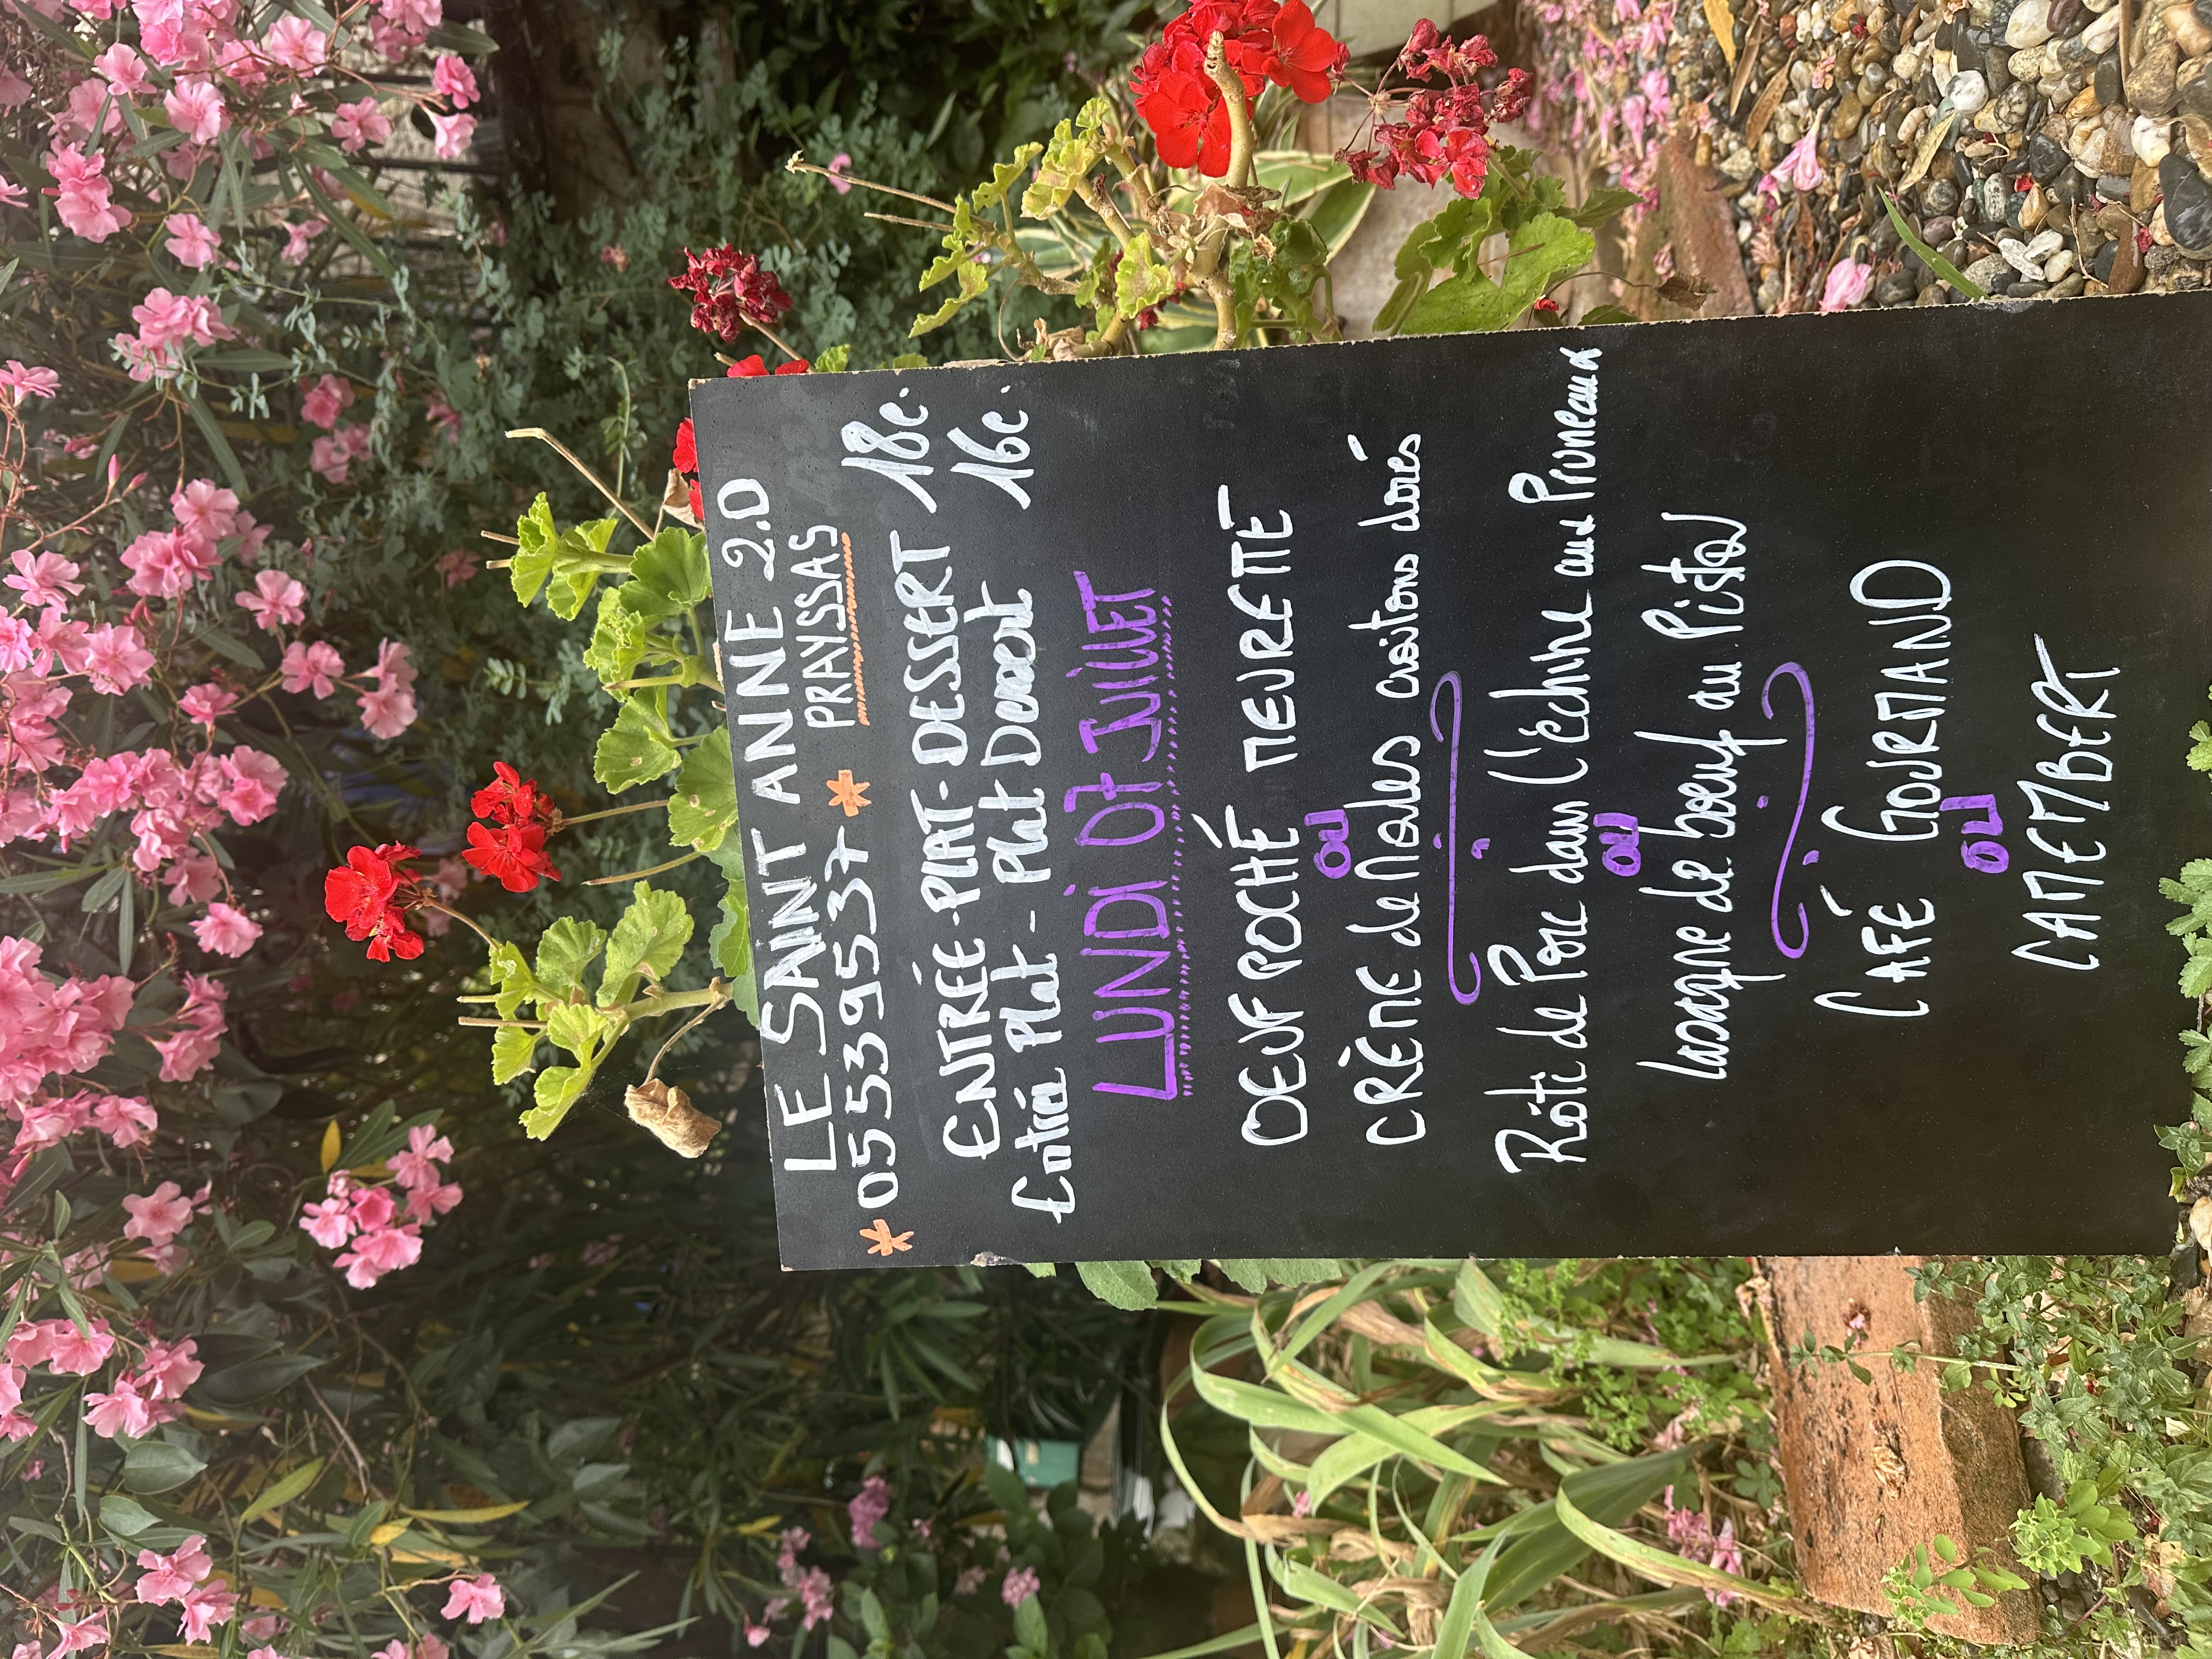 LE SAINT ANNE 2.0
* 0553959537 * PRAYSSAS
ENTRÉE-PLAT-DESSERT 18€.
Entrée Plat - Plat Dessert 16€.
LUNDI 07 JUILLET
OEUF POCHÉ MEURETTE
OU
CRÈME de Moules croûtons dorés
Rôti de Porc dans L'échine aux Pruneaux
OU
lasagne de boeuf au Pistou
CAFÉ GOURMAND
OU
CAMEMBERT